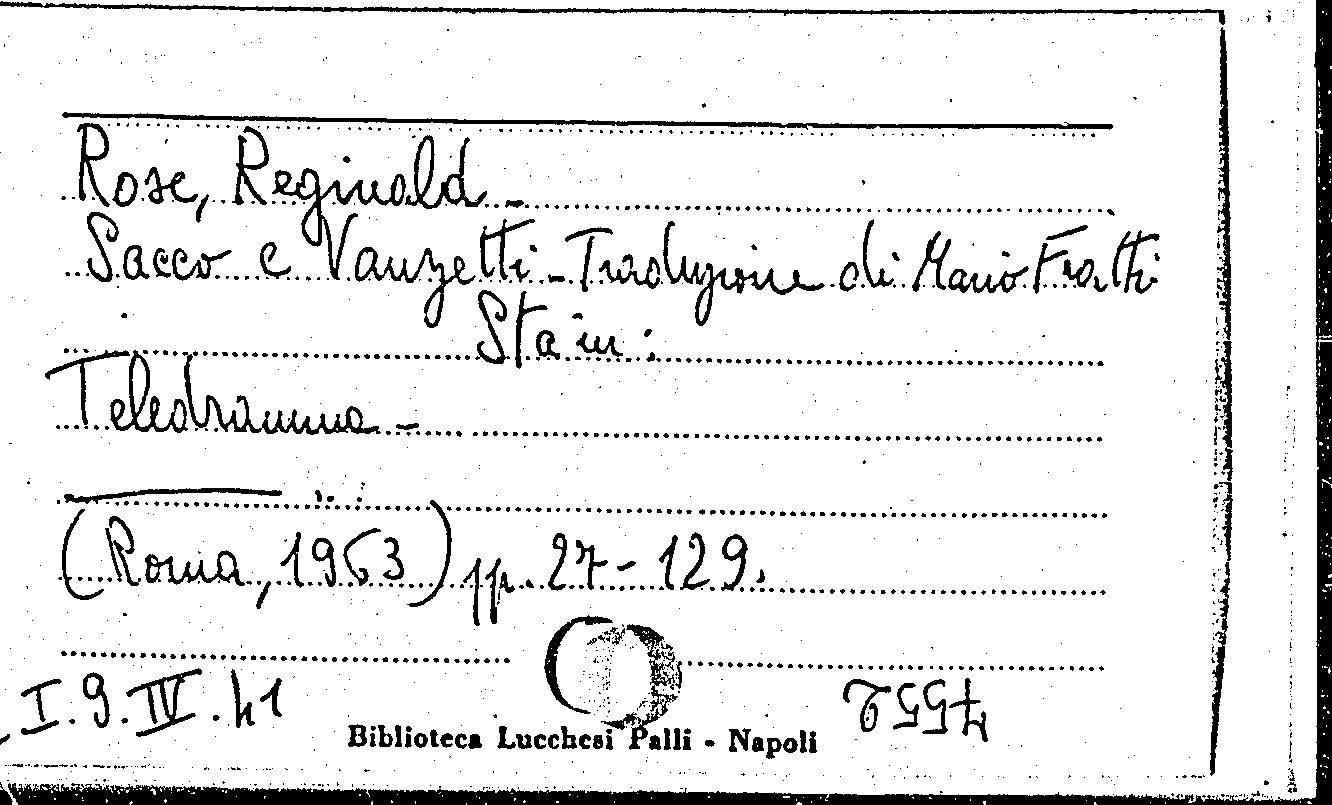 Rose, Reginald -
Sacco e Vanzetti - Traduzione di Mario Fratti
Sta in:
Teledramma -
(Roma, 1963) pp. 27-129.
I.9.IV.41
Biblioteca Lucchesi Palli - Napoli